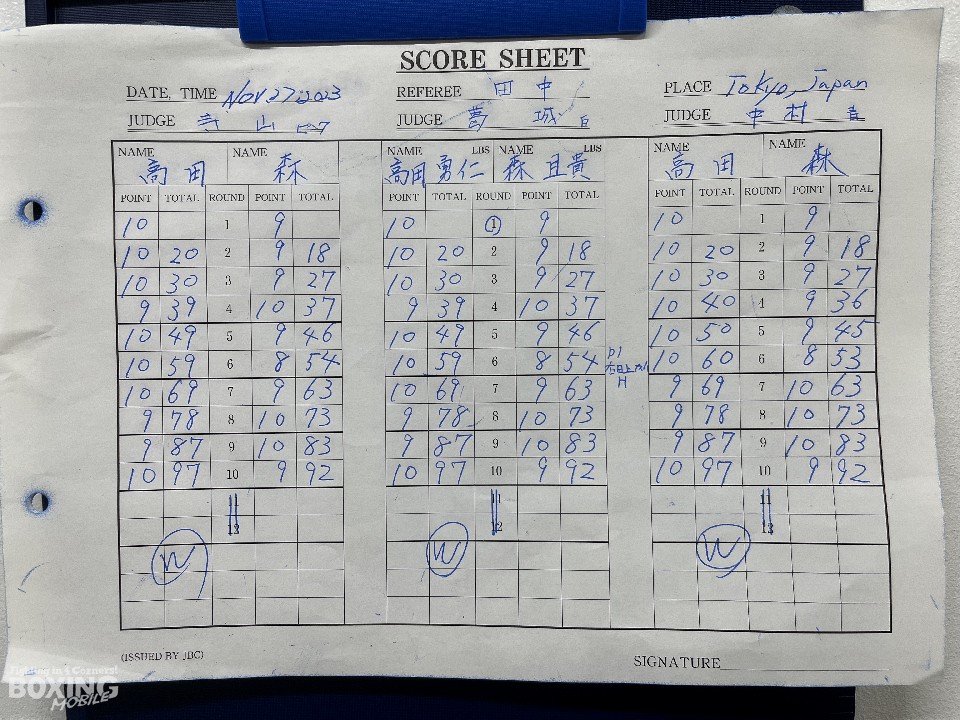 SCORE SHEET
DATE, TIME Nov 27 2023 REFEREE 田中 PLACE Tokyo, Japan
JUDGE 寺山 JUDGE 葛城 JUDGE 中村
NAME NAME NAME LBS NAME LBS NAME NAME
高田 森 高田勇仁 森且貴 高田 森
POINT TOTAL ROUND POINT TOTAL POINT TOTAL ROUND POINT TOTAL POINT TOTAL ROUND POINT TOTAL
10 1 9 10 1 9 10 1 9
10 20 2 9 18 10 20 2 9 18 10 20 2 9 18
10 30 3 9 27 10 30 3 9 27 10 30 3 9 27
9 39 4 10 37 9 39 4 10 37 10 40 4 9 36
10 49 5 9 46 10 49 5 9 46 10 50 5 9 45
10 59 6 8 54 10 59 6 8 54 10 60 6 8 53
10 69 7 9 63 10 69 7 9 63 9 69 7 10 63
9 78 8 10 73 9 78 8 10 73 9 78 8 10 73
9 87 9 10 83 9 87 9 10 83 9 87 9 10 83
10 97 10 9 92 10 97 10 9 92 10 97 10 9 92
11 11 11
12 12 12
W W W
(ISSUED BY JBC) SIGNATURE
Fighting in 4 Corners!
BOXING
MOBILE